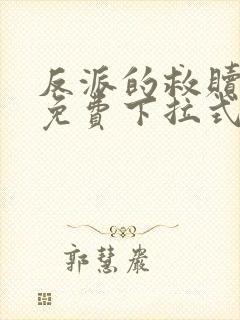 反派的救赎
免費下拉式
郭慧嚴